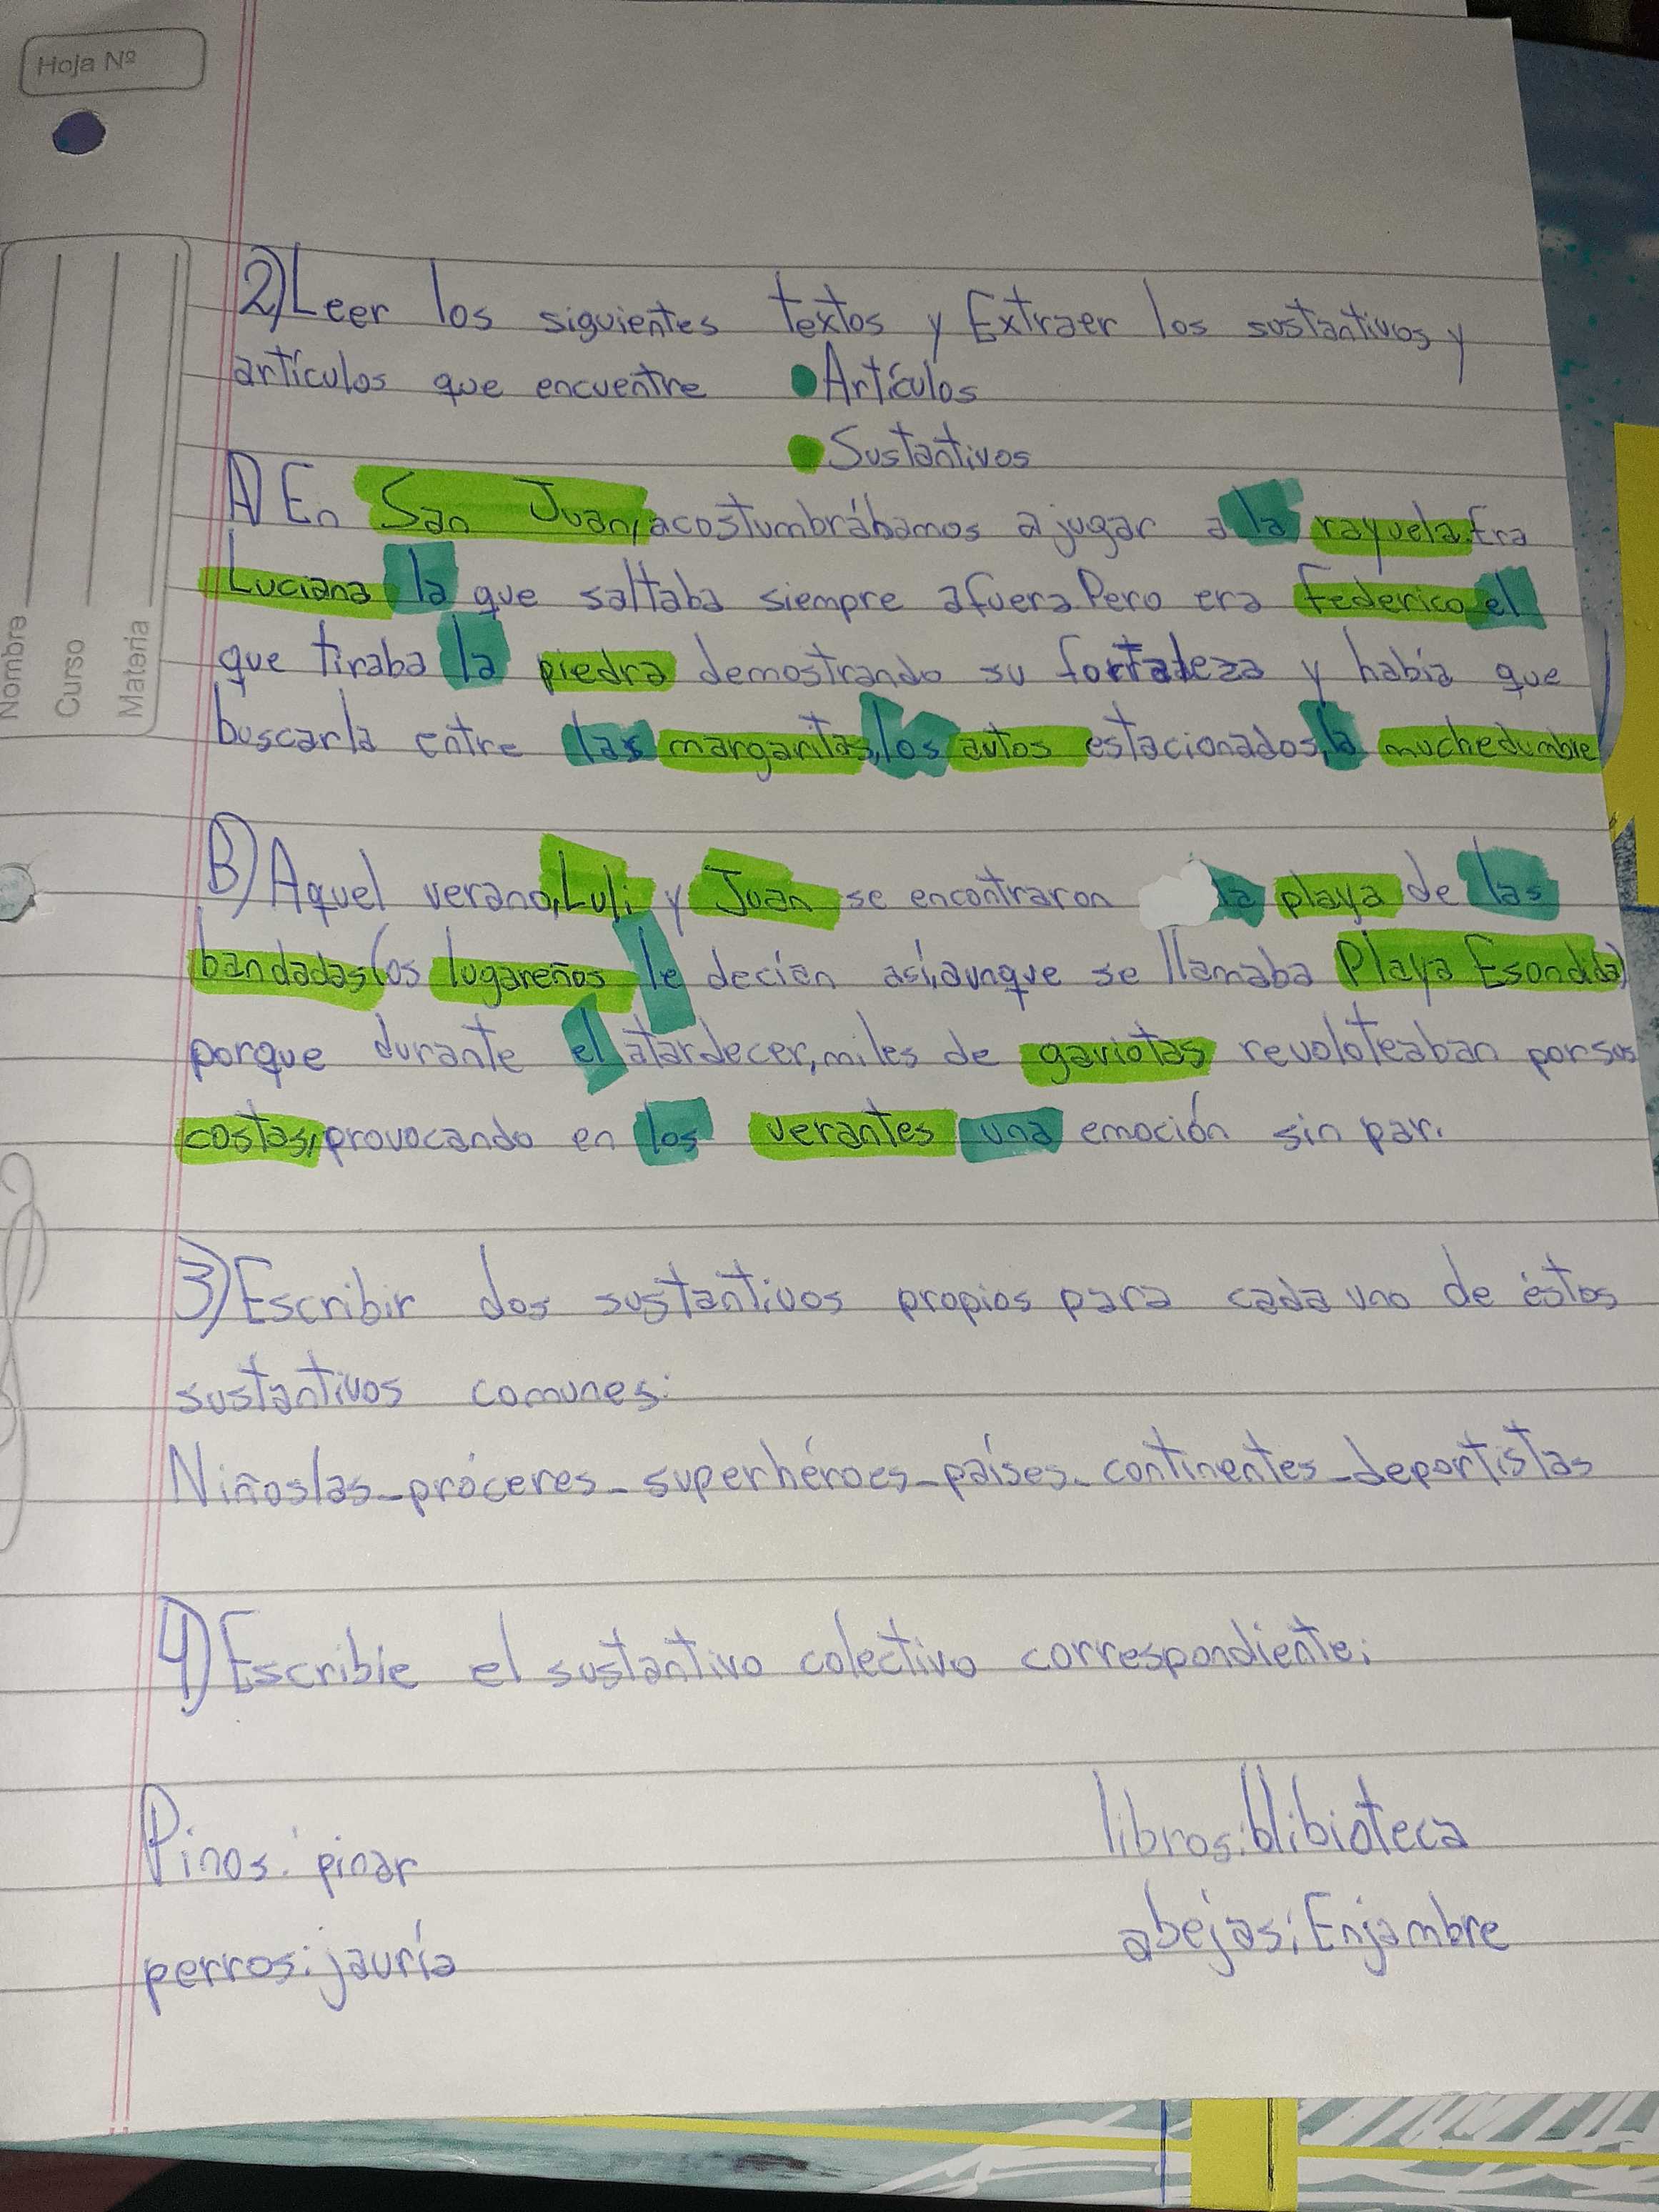 Hoja Nº
Nombre
Curso
Materia
2) Leer los siguientes textos y Extraer los sustantivos y
artículos que encuentre • Artículos
• Sustantivos
A) En San Juan, acostumbrábamos a jugar a la rayuela. Era
Luciana la que saltaba siempre afuera. Pero era Federico el
que tiraba la piedra demostrando su fortaleza y había que
buscarla entre las margaritas, los autos estacionados, la muchedumbre
B) Aquel verano, Luli y Juan se encontraron la playa de las
bandadas (os lugareños le decían así, aunque se llamaba Playa Esondida)
porque durante el atardecer, miles de gaviotas revoloteaban por sus
costas, provocando en los verantes una emoción sin par.
3) Escribir dos sustantivos propios para cada uno de éstos
sustantivos comunes:
Niños/as - próceres - superhéroes - países - continentes - deportistas
4) Escribíe el sustantivo colectivo correspondiente:
Pinos: pinar
libros: Blibioteca
perros: jauría
abejas: Enjambre